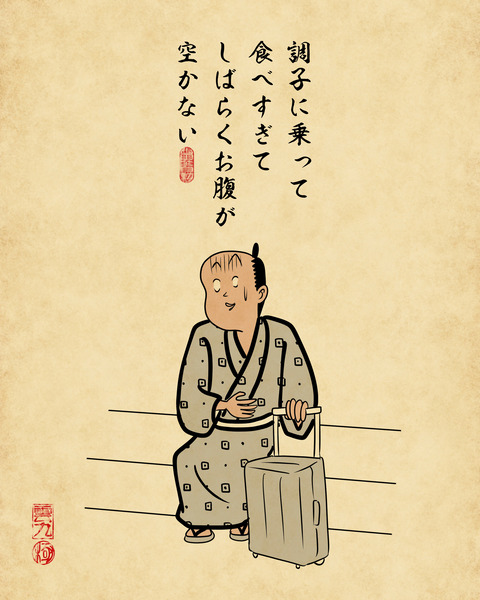 調子に乗って
食べすぎて
しばらくお腹が
空かない